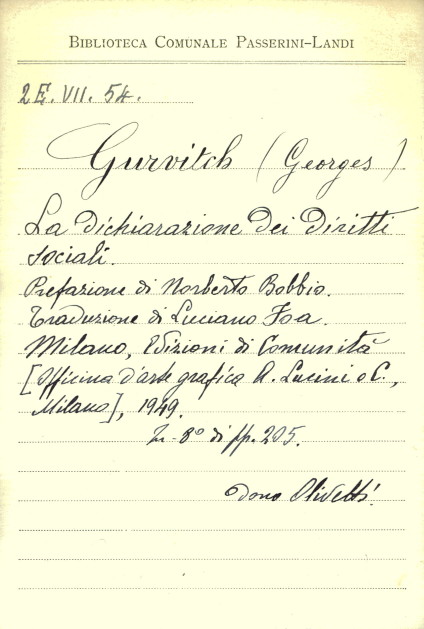 BIBLIOTECA COMUNALE PASSERINI-LANDI
2E. VII. 54.
Gurvitch (Georges)
La dichiarazione dei diritti
sociali.
Prefazione di Norberto Bobbio.
Traduzione di Luciano Foa.
Milano, Edizioni di Comunità
[Officina d'arte grafica A. Lucini e C.,
Milano], 1949.
In-8° di pp. 205.
Dono Olivetti.